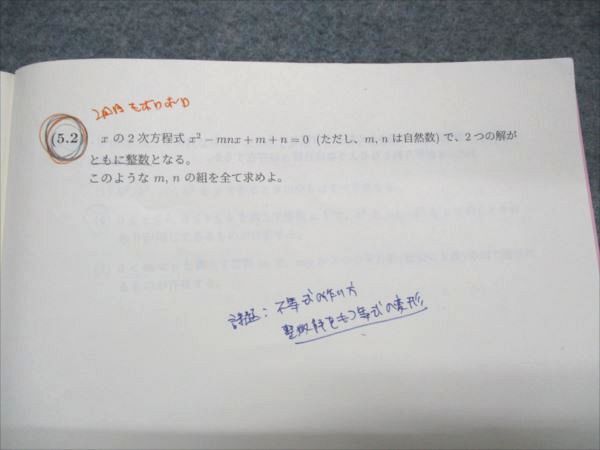 2周目もボロボロ
(5.2) x の 2 次方程式 x² − mnx + m + n = 0 (ただし、m, n は自然数) で、2 つの解が
ともに整数となる。
このような m, n の組を全て求めよ。
課題: 不等式の作り方
整数解をもつ等式の変形